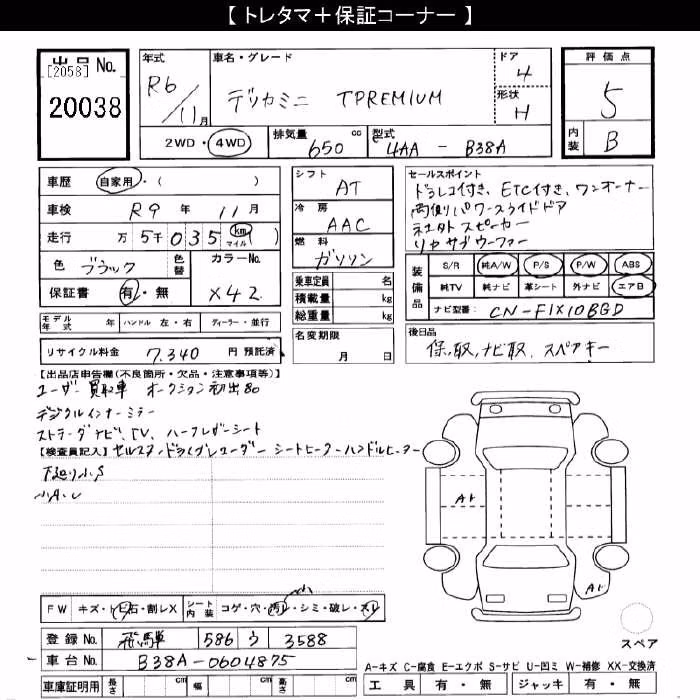 【 トレタマ＋保証コーナー 】
出品 No.
[2058]
20038
年式
R6/11月
車名・グレード
デリカミニ TPREMIUM
ドア
4
形状
H
評価点
5
内装 B
2WD・4WD
排気量 650 cc
型式 4AA - B38A
車歴 自家用・( )
車検 R9 年 11 月
走行 万 5千 0 3 5 km マイル ( )
色 ブラック
色替
カラーNo. X42
保証書 有・無
モデル年式 年 ハンドル 左・右 ディーラー・並行
リサイクル料金 7,340 円 預託済
シフト AT
冷房 AAC
燃料 ガソリン
乗車定員 名
積載量 kg
総重量 kg
名変期限
月 日
セールスポイント
ドラレコ付き、ETC付き、ワンオーナー
両側パワースライドドア
スピーカー
リヤサブウーファー
装備品
S/R 純A/W P/S P/W ABS
純TV 純ナビ 革シート 外ナビ エアB
ナビ型番: CN-F1X10BGD
後日品
保、取、ナビ取、スペアキー
【出品店申告欄(不良箇所・欠品・注意事項等)】
ユーザー買取車 オークション初出品
デジタルインナーミラー
ストラーダナビ、TV、ハーフレザーシート
【検査員記入】
シートヒーター ハンドルヒーター
下廻り小S
小A・U
FW キズ・トビ石・割レX
シート内装 コゲ・穴・汚レ・シミ・破レ・スレ
小
登録 No. 飛騨 586 ウ 3588
車台 No. B38A-0604875
車庫証明用 長さ cm 幅 cm 高さ cm
A1
A1
スペア
A-キズ C-腐食 E-エクボ S-サビ U-凹ミ W-補修 XX-交換済
工具 有・無 ジャッキ 有・無